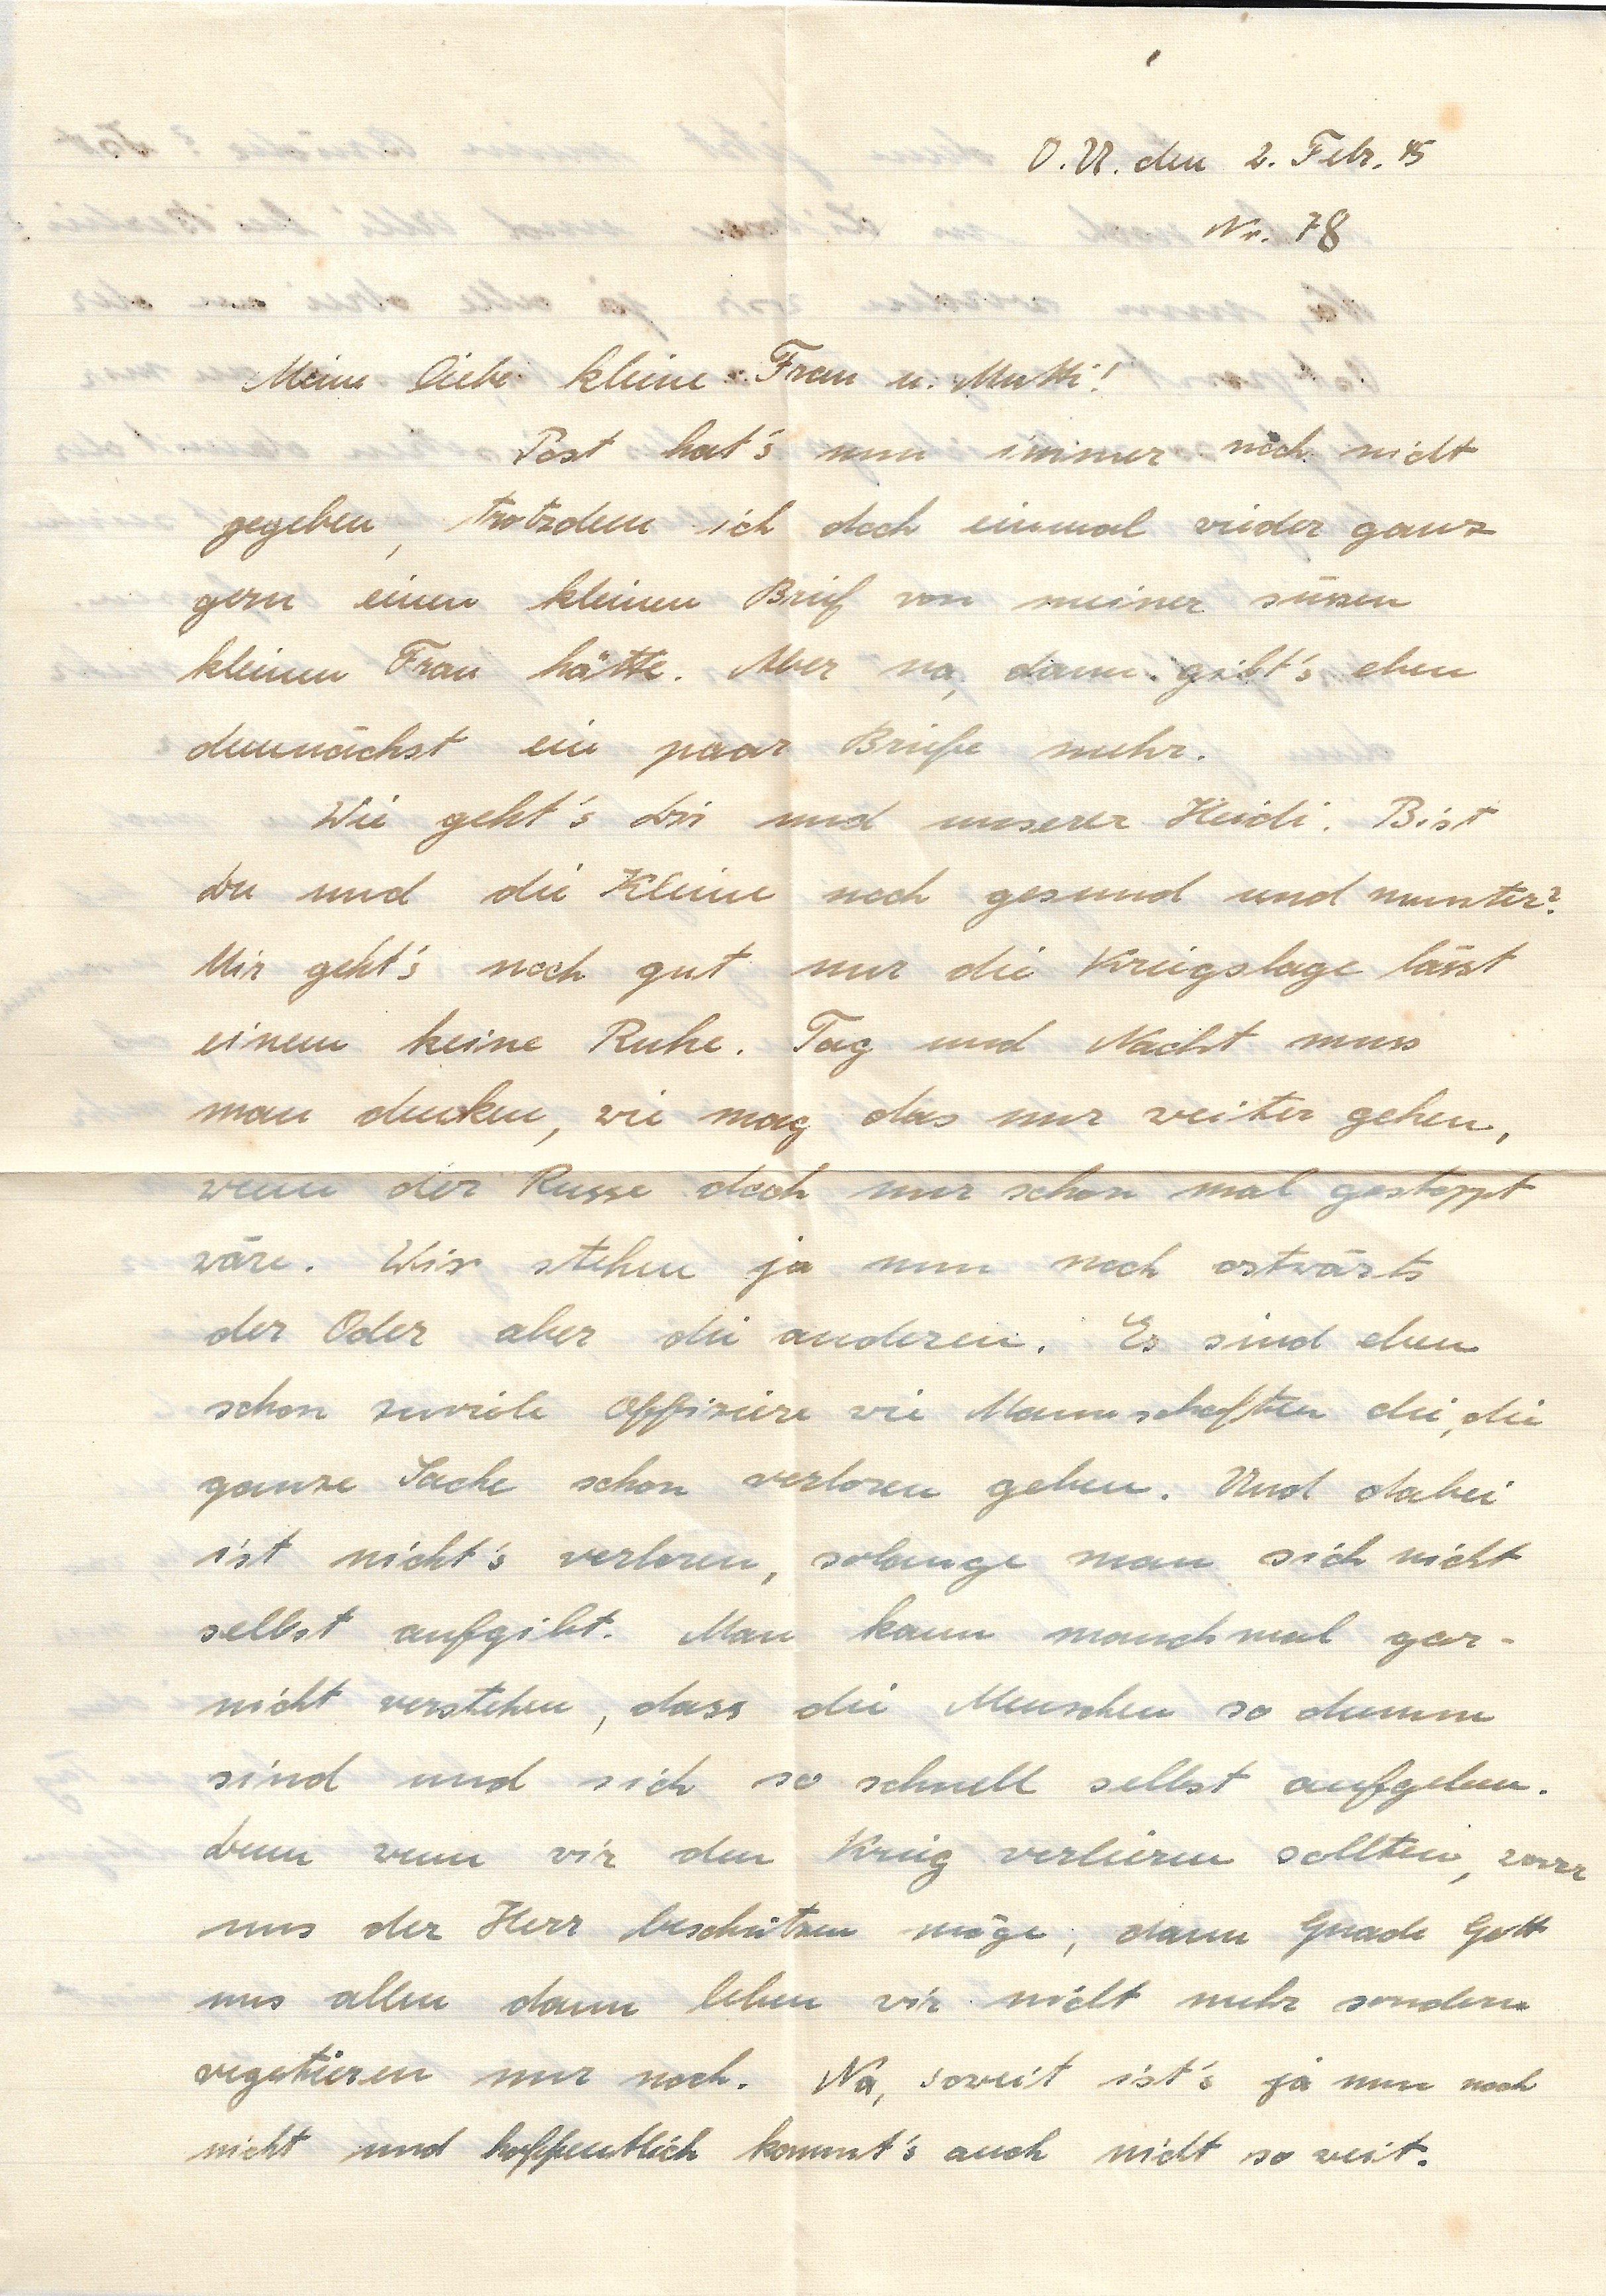 O.U. den 2. Febr. 45
Nr. 78
Meine liebe kleine Frau u. Mutti!
Post hat's nun immer noch nicht
gegeben, trotzdem ich doch einmal wieder ganz
gern einen kleinen Brief von meiner süssen
kleinen Frau hätte. Aber na, dann gibt's eben
demnächst ein paar Briefe mehr.
Wie geht's Dir und unserer Heidi. Bist
Du und die Kleine noch gesund und munter?
Mir geht's noch gut nur die Kriegslage lässt
einem keine Ruhe. Tag und Nacht muss
man denken, wie mag das nur weiter gehen,
wenn der Russe doch nur schon mal gestoppt
wäre. Wir stehen ja nun noch ostwärts
der Oder aber die anderen. Es sind eben
schon zuviele Offiziere wie Mannschaften die, die
ganze Sache schon verloren geben. Und dabei
ist nicht's verloren, solange man sich nicht
selbst aufgibt. Man kann manchmal gar-
nicht verstehen, dass die Menschen so dumm
sind und sich so schnell selbst aufgeben.
Denn wenn wir den Krieg verlieren sollten,
uns der Herr beschützen möge, dann Gnade Gott
uns allen dann leben wir nicht mehr sondern
vegetieren nur noch. Na, soweit ist's ja nun noch
nicht und hoffentlich kommt's auch nicht so weit.